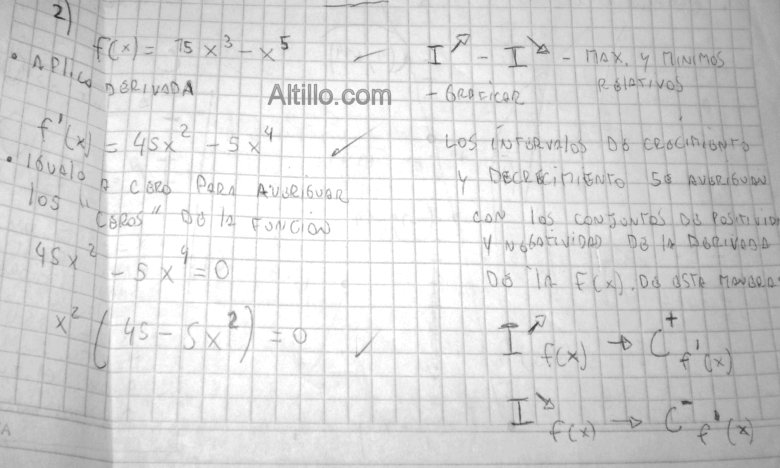 2)
f(x) = 15x³ - x⁵
• APLICO
DERIVADA
f'(x) = 45x² - 5x⁴
• IGUALO
A CERO PARA AVERIGUAR
LOS "CEROS" DE LA FUNCION
45x² - 5x⁴ = 0
x² (45 - 5x²) = 0
I↗ - I↘ - MAX. Y MINIMOS
RELATIVOS
- GRAFICAR
LOS INTERVALOS DE CRECIMIENTO
Y DECRECIMIENTO SE AVERIGUAN
CON LOS CONJUNTOS DE POSITIVID
Y NEGATIVIDAD DE LA DERIVADA
DE LA F(x). DE ESTA MANERA
I↗ f(x) → C⁺ f'(x)
I↘ f(x) → C⁻ f'(x)
Altillo.com